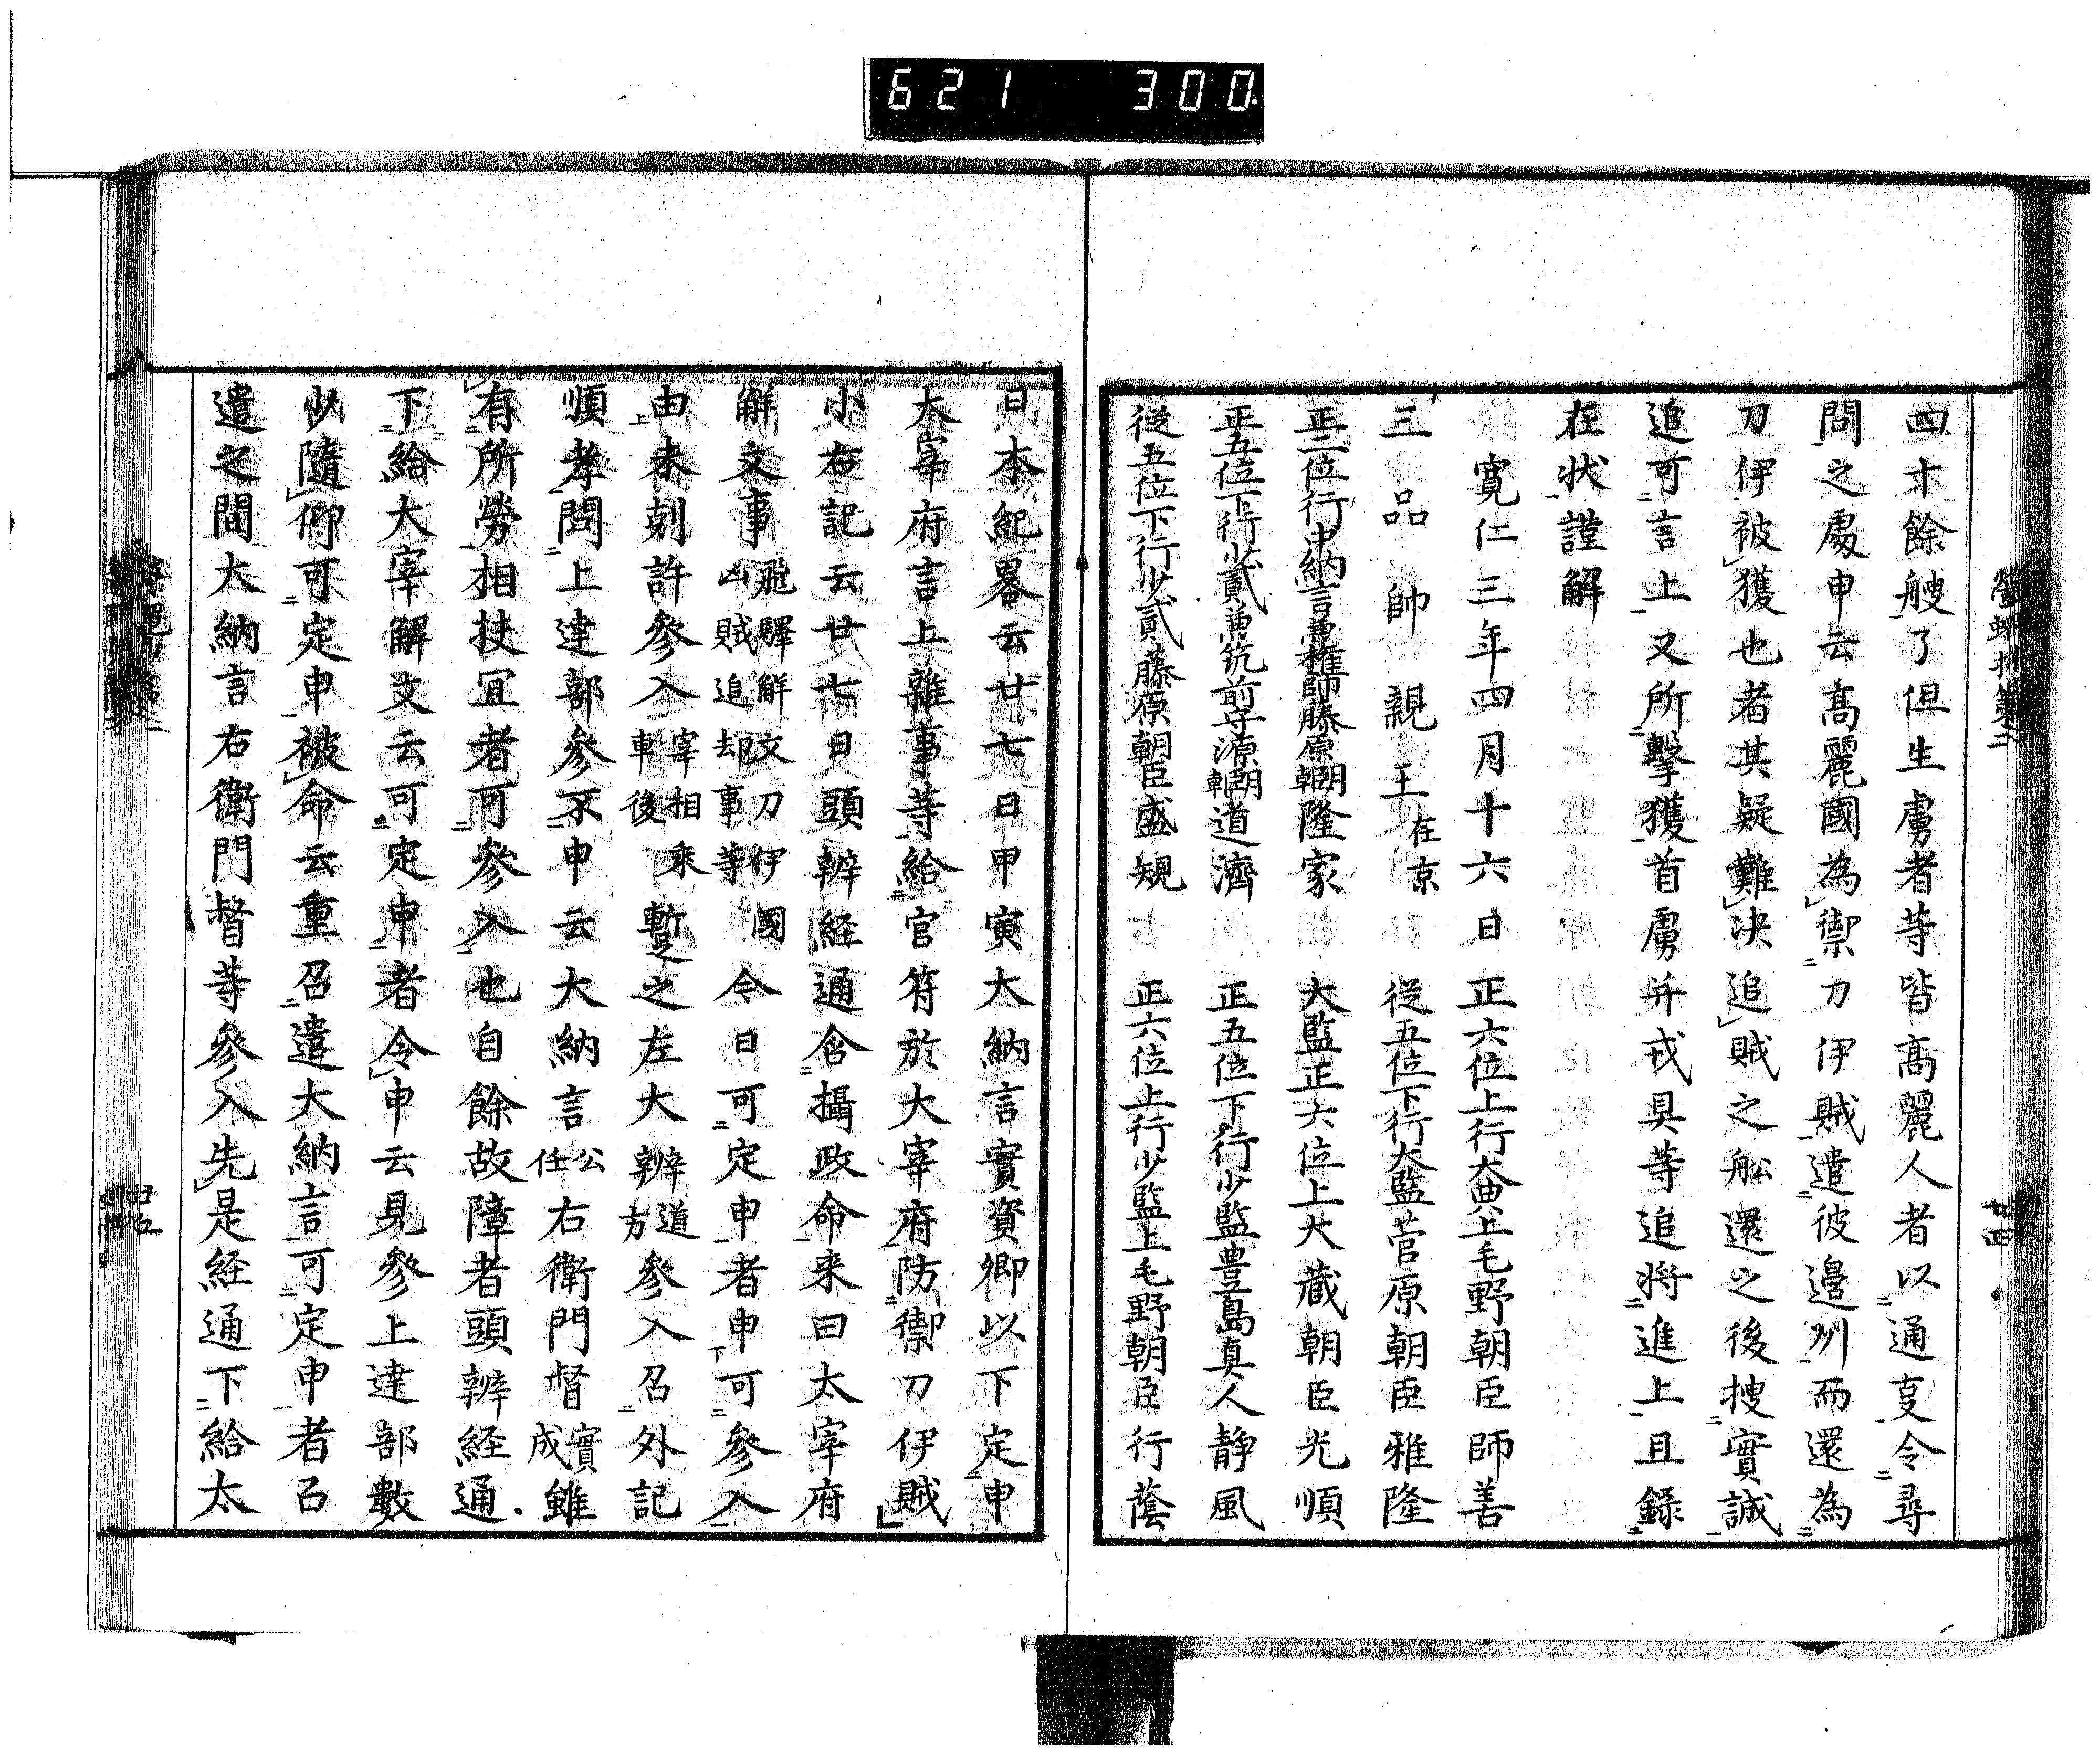 621 300
四十餘艘了但生虜者等皆髙麗人者以通㕝令尋
問之處申云髙麗國為禦刀伊賊遣彼邊州而還為
刀伊被獲也者其疑難決追賊之舩還之後捜實誠
追可言上又所擊獲首虜并戎具等追將進上且錄
在状謹解
寛仁三年四月十六日 正六位上行大典上毛野朝臣師善
三品帥親王在京 従五位下行大監菅原朝臣雅隆
正二位行中納言兼權帥藤原朝臣隆家 大監正六位上大藏朝臣光順
正五位下行少貳兼筑前守源朝臣道濟 正五位下行少監豊島真人静風
從五位下行少貳藤原朝臣盛規 正六位上行少監上毛野朝臣行蔭
日本紀畧云廿七日甲寅大納言實資卿以下定申
大宰府言上雜事等給官符於大宰府防禦刀伊賊
小右記云廿七日頭辨経通含攝政命来曰太宰府
解文事飛驛解文刀伊國凶賊追却事等今日可定申者申可參入
由未剋許參入宰相乘車後暫之左大辨道方參入召外記
順孝問上達部參不申云大納言公任右衛門督實成雖
有所勞相扶冝者可參入也自餘故障者頭辨経通
下給大宰解文云可定申者令申云見參上達部數
少隨仰可定申被命云重召遣大納言可定申者召
遣之間大納言右衛門督等參入先是経通下給太